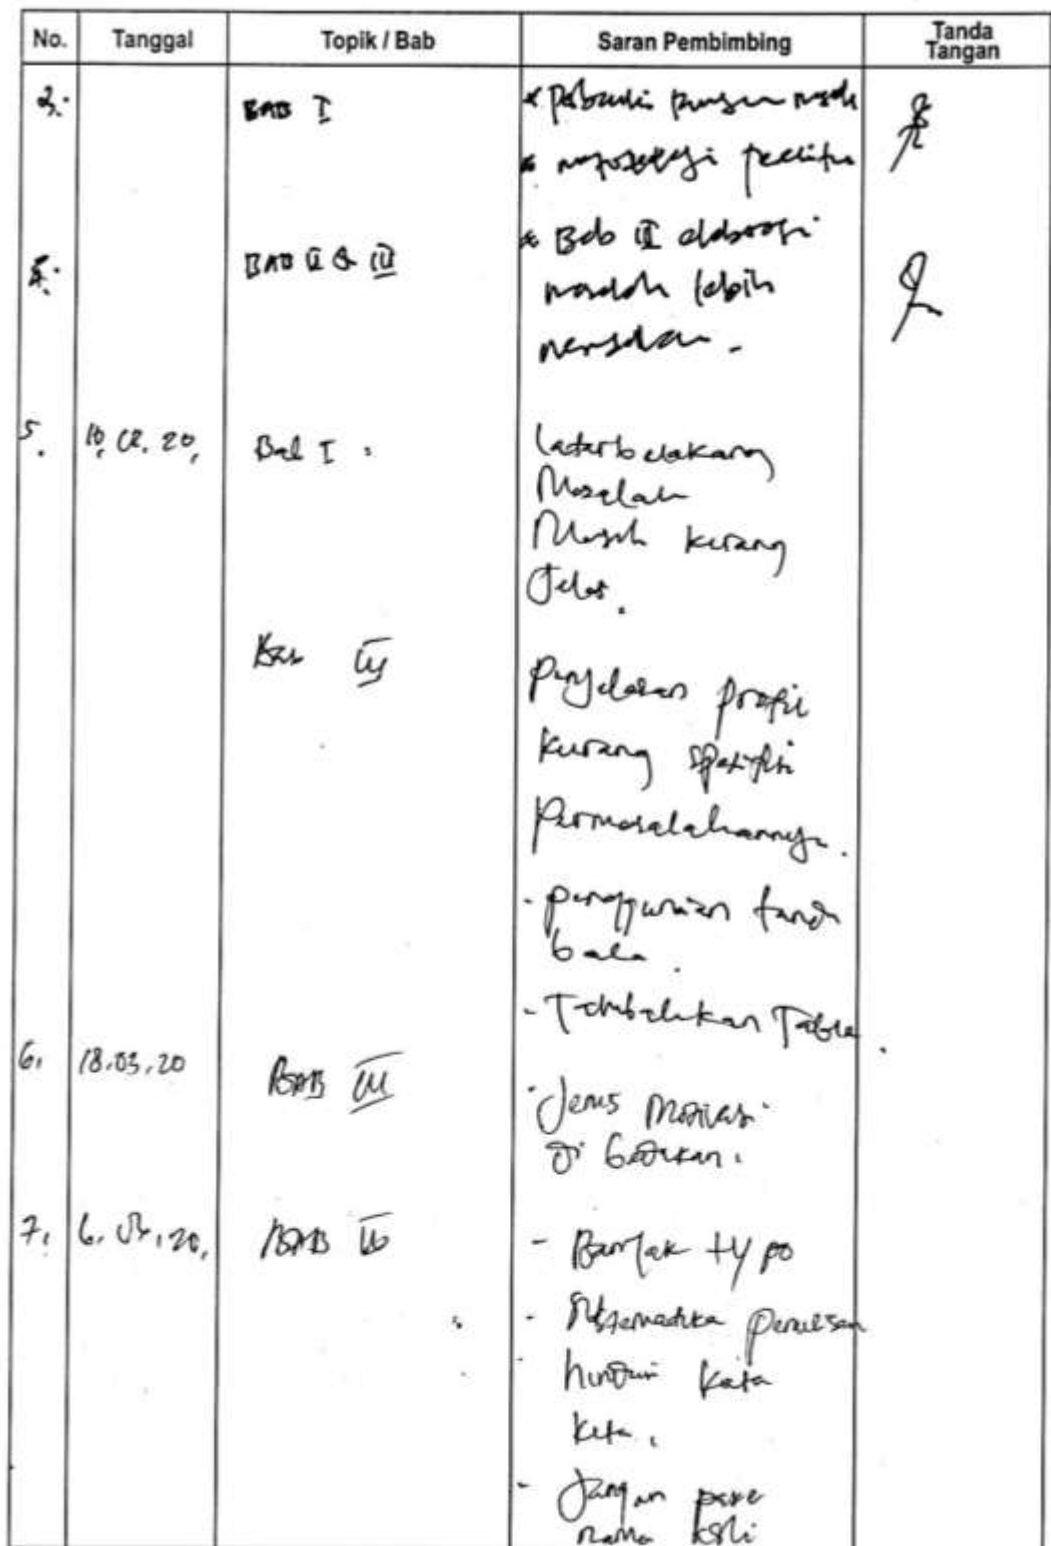 No. Tanggal Topik / Bab Saran Pembimbing Tanda Tangan
3. BAB I * perbaiki
* metodologi peneliti
4. BAB II & III * Bab II elaborasi
masalah lebih
mendalam.
5. 10.02.20, Bab I : Latar belakang
Masalah
Masih kurang
Jelas.
Bab III Penjelasan profil
kurang spesifik
Permasalahannya.
- penggunaan tanda
baca.
- Tambahkan Table.
6. 18.03.20 BAB III - Jenis Motivasi
di bedakan.
7. 6.04.20, BAB IV - Banyak typo
- Sistematika Penulisan
- hindari kata
kita.
- Jangan pake
nama asli